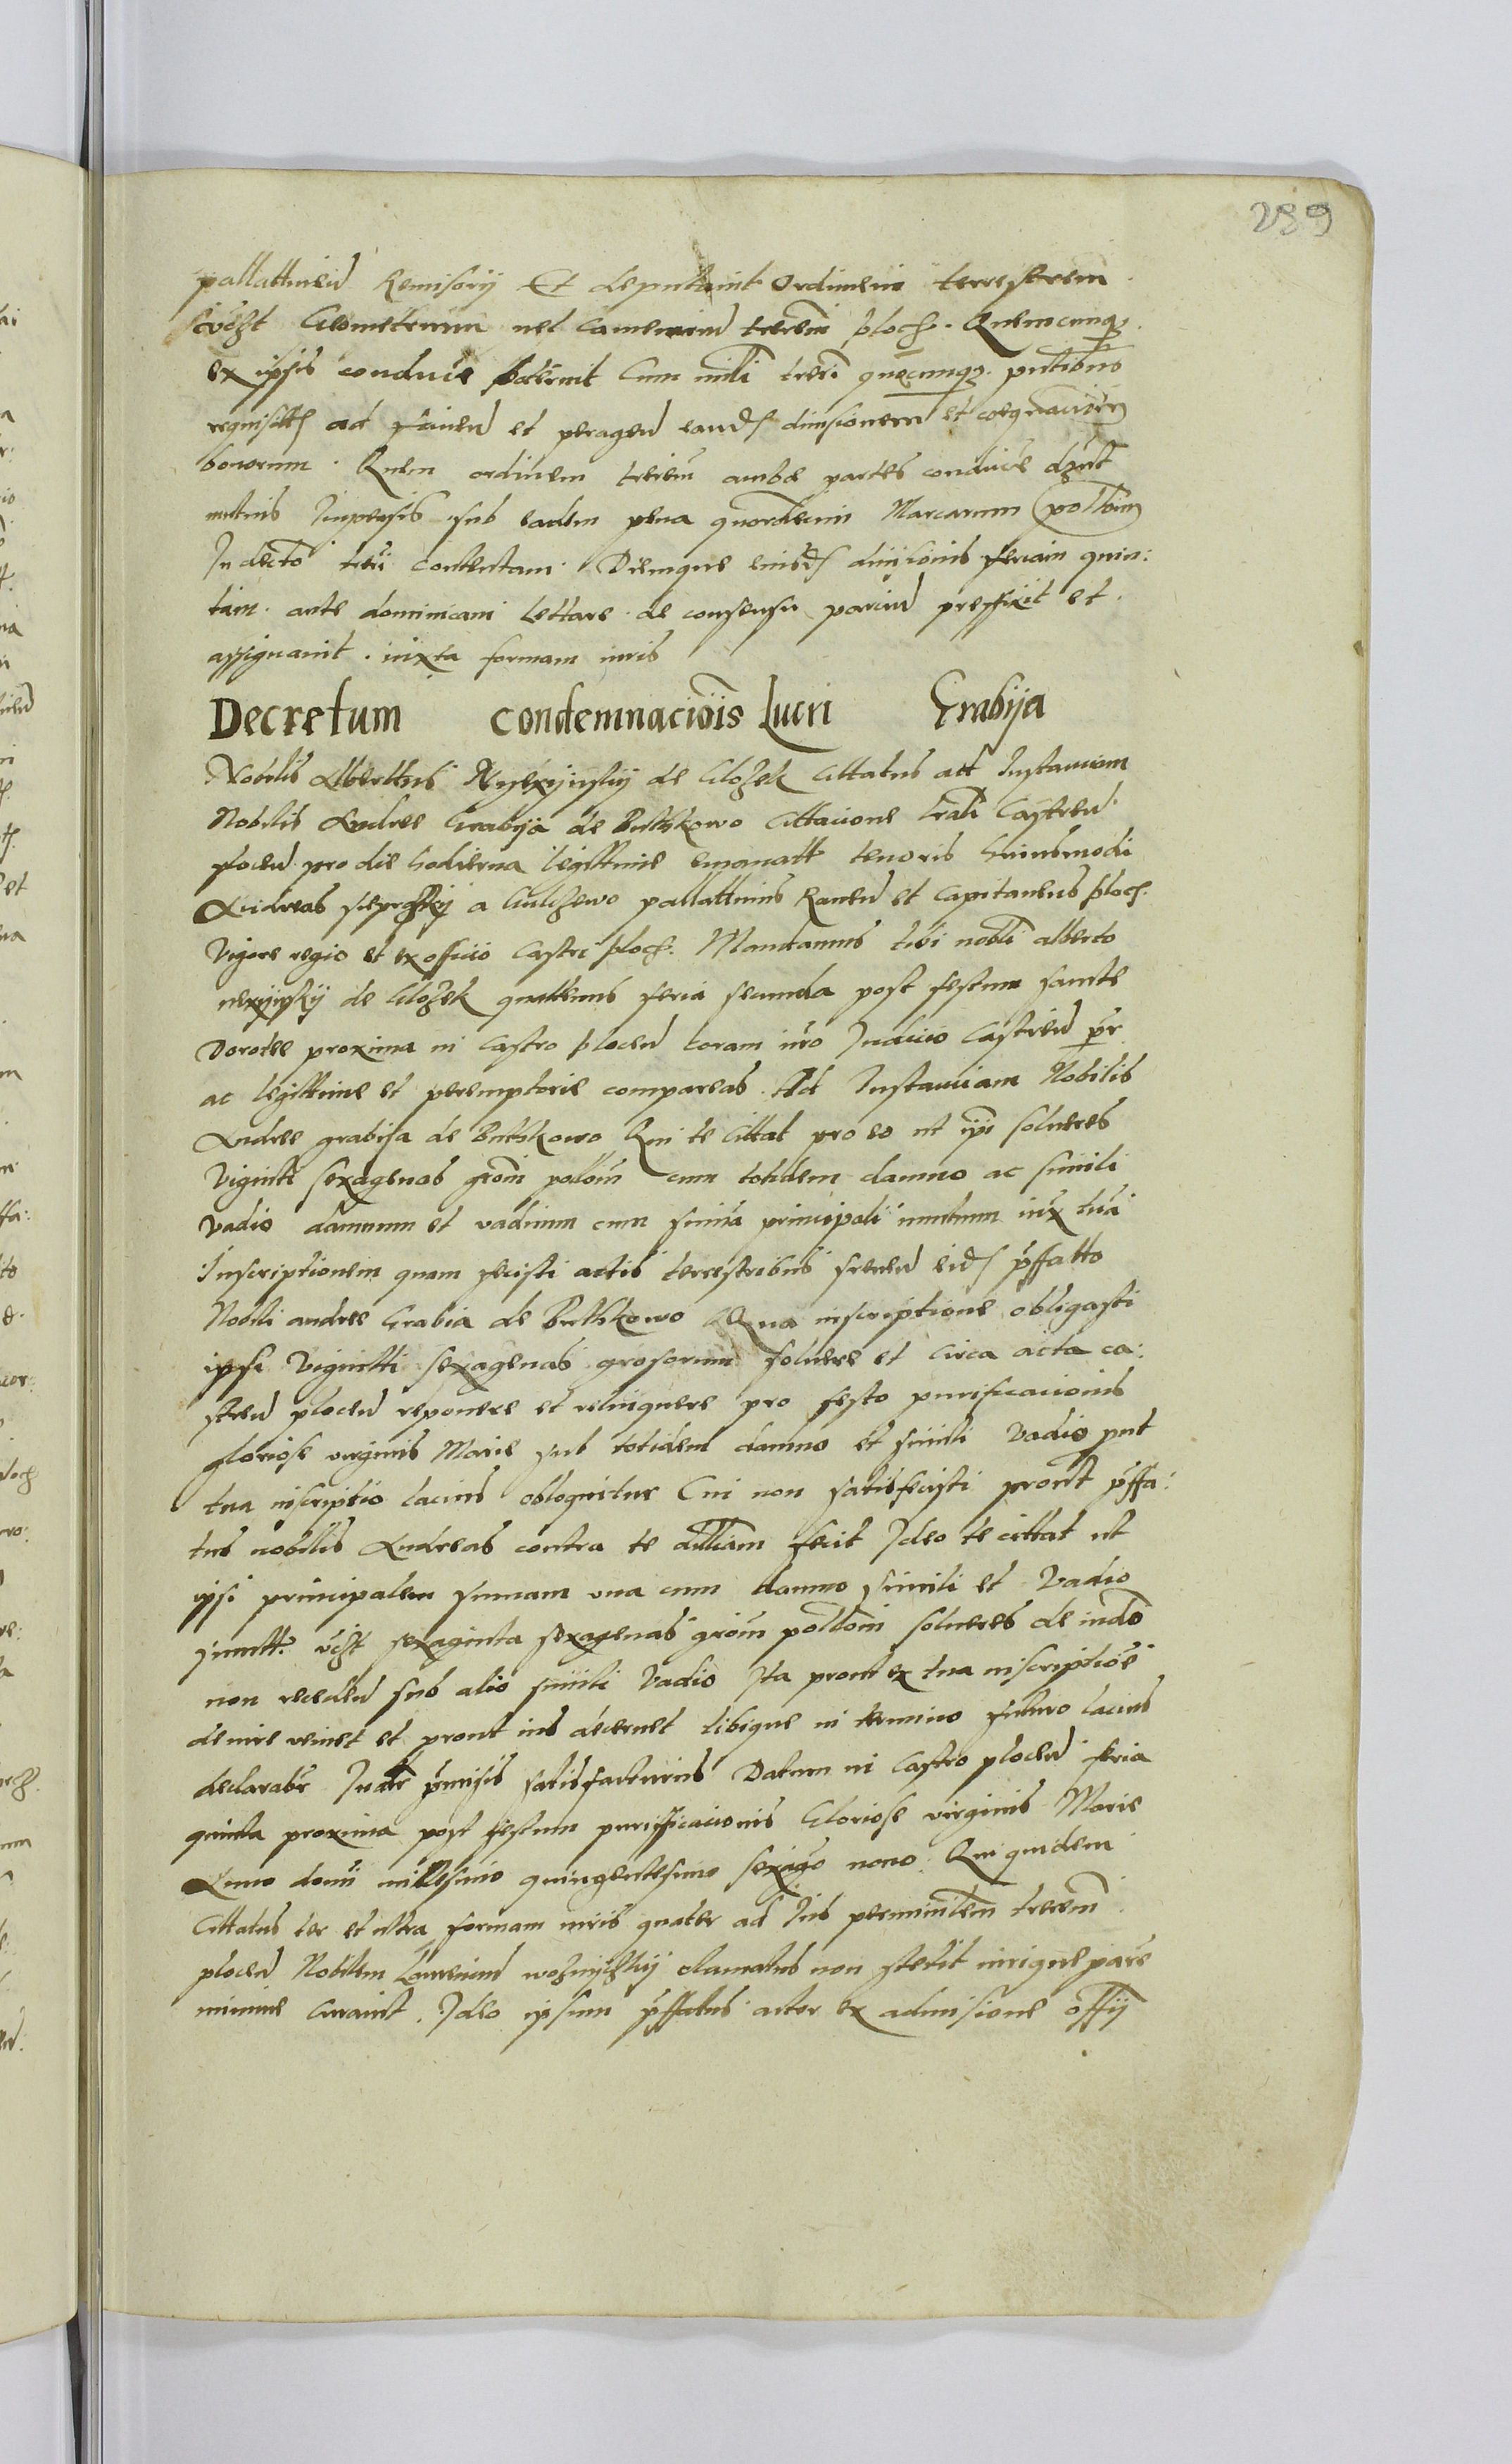 289
pallattinen Remisorÿ Et deputavit Ordinem terrestrem
sivczt Geometrum uel Camerarium trrem ploczen. Quemcunqz
ex ipsis conduce poterint Cum mili trri quecunqz pntibus
requisitt ad fiien et peragen eand divisionem et coequacioem
bonorum. Quem ordinem trrem ambe partes conduce debnt
mutuis Impensis sub eadem pena quordecim Marcarum polloni
In decto trri contentam. Diemque eiusd divisionis feriam quin:
tam. ante dominicam lettare. de consensu parcium preffixit et.
assignauit. iuxta formam iuris
Decretum condemnacioīs Lucri Grabija
Nobilis Albertus de Glozek Cittatus att Instanciam
Nobilis Andree Grabija de Buthkowo Cittacione Lrali Castren
plocen pro die hodierna legittime emanatt tenoris huiusmodi
Andreas sieprsky a Gulczewo pallattinus Rauen et Capitaneus ploczen.
Vigore regio et ex officio Castri ploczen. Mandamus tibi nobli alberto
de Glozek quattenus feria secunda post festum sancte
Dorotee proxima in Castro plocen coram nro Iudicio Castren pr
ac legittime et peremptorie compareas. Ad Instanciam Nobilis
Andree grabija de Buthkowo Qui te Cittat pro eo ut ipi solueres
Viginti sexagenas grom pollom cum totidem damno ac simili
vadio damnum et vadium cum suma principali iunctum iux tua
Inscriptionem quam fecisti actis terrestribus eid pffatto
Nobili andree Grabia de Buthkowo Qua inscriptione obligasti
ipsi Viginitti sexagenas grosorum soluere et circa acta ca:
stren plocen reponere et relinquere pro festo purificacionis
gloriose virginis Marie sub totidem damno et simili Vadio put
tua inscriptio lacius obloquitur Cui non satisfecisti prout pffa:
tus nobilis Andreas contra te fecit Ideo te cittat ut
ipsi principalem sumam una cum damno simili et Vadio
simitt. vczt sexaginta sexagenas grom polloni solueres de indo
non receden sub alio simili Vadio Ita prout ex tua inscriptioe
de iure venet et prout ius decernet tibique in termino futuro lacius
declarabr Iuatr pmisis satisfacturus Datum in Castro plocen feria
quinta proxima post festum purifficacionis Gloriose virginis Marie
Anno domi millesimo quingentesimo sexago nono. Qui quidem
Cittatus ter et ultra formam iuris quater ad Ius per trrem
plocen Nobilem Laurencium clamatus non stetit iurique pare
minime Curauit. Ideo ipsum pffatus actor ex admisione offÿ